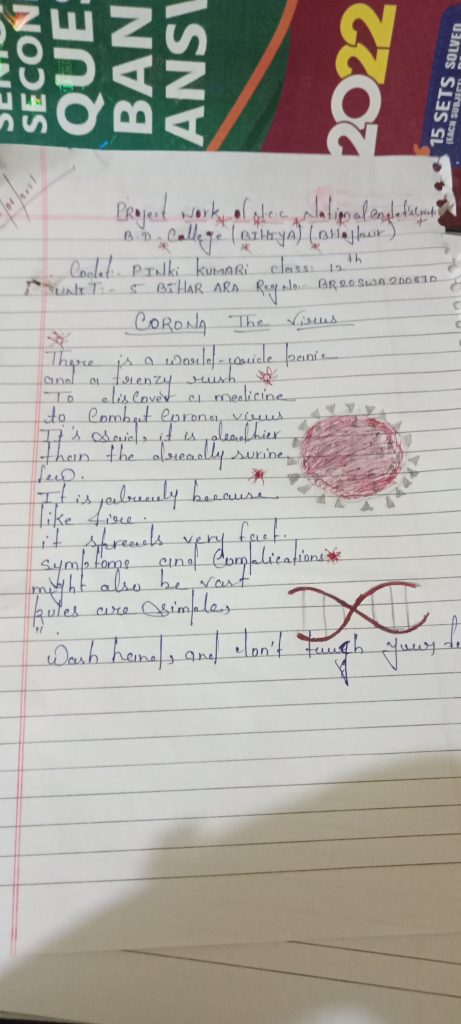 SECON
QUES
BAN
ANSW
2022
15 SETS SOLVED
(EACH SUBJECT)
Project work of the National
B.D. College (BIHIYA) (BHojpur)
Cadet:- PINki KUMARi class: 12th
UNIT:- 5 BIHAR ARA Reg No. BR20SWA200870
CORONA The Virus
There is a world-wide panic
and a frenzy rush
To discover a medicine
to Combat Corona virus
It's said, it is deadhier
than the already surine
It is already because
like fire.
it spreads very fact.
symptoms and Complications
might also be vast
Rules are simple,
"
Wash hands, and don't tough your